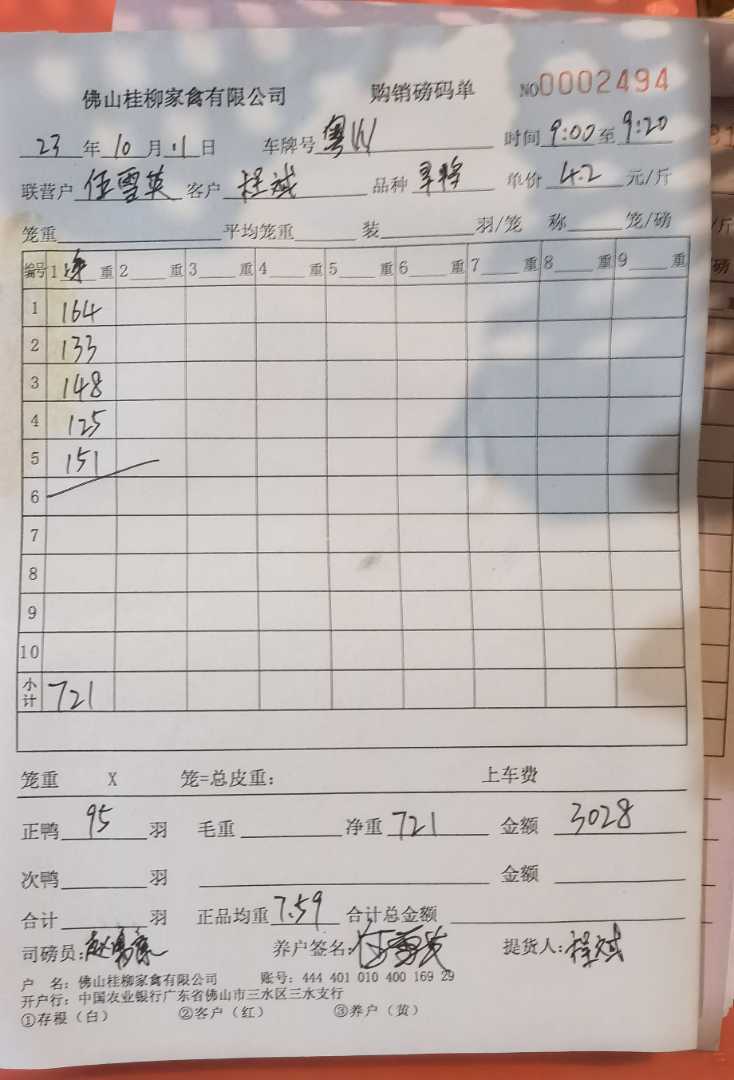 佛山桂柳家禽有限公司 购销磅码单 NO0002494
23年10月11日 车牌号粤W 时间9:00至9:20
联营户任雪英客户程斌 品种 单价4.2元/斤
笼重 平均笼重 装 羽/笼 称 笼/磅
编号 1净重 2 重 3 重 4 重 5 重 6 重 7 重 8 重 9 重
1 164
2 133
3 148
4 125
5 151
6
7
8
9
10
小计 721
笼重 X 笼=总皮重: 上车费
正鸭 95 羽 毛重 净重 721 金额 3028
次鸭 羽 金额
合计 羽 正品均重 7.59 合计总金额
司磅员: 养户签名:任雪英 提货人:程斌
户 名: 佛山桂柳家禽有限公司 账号: 444 401 010 400 169 29
开户行: 中国农业银行广东省佛山市三水区三水支行
①存根(白) ②客户(红) ③养户(黄)